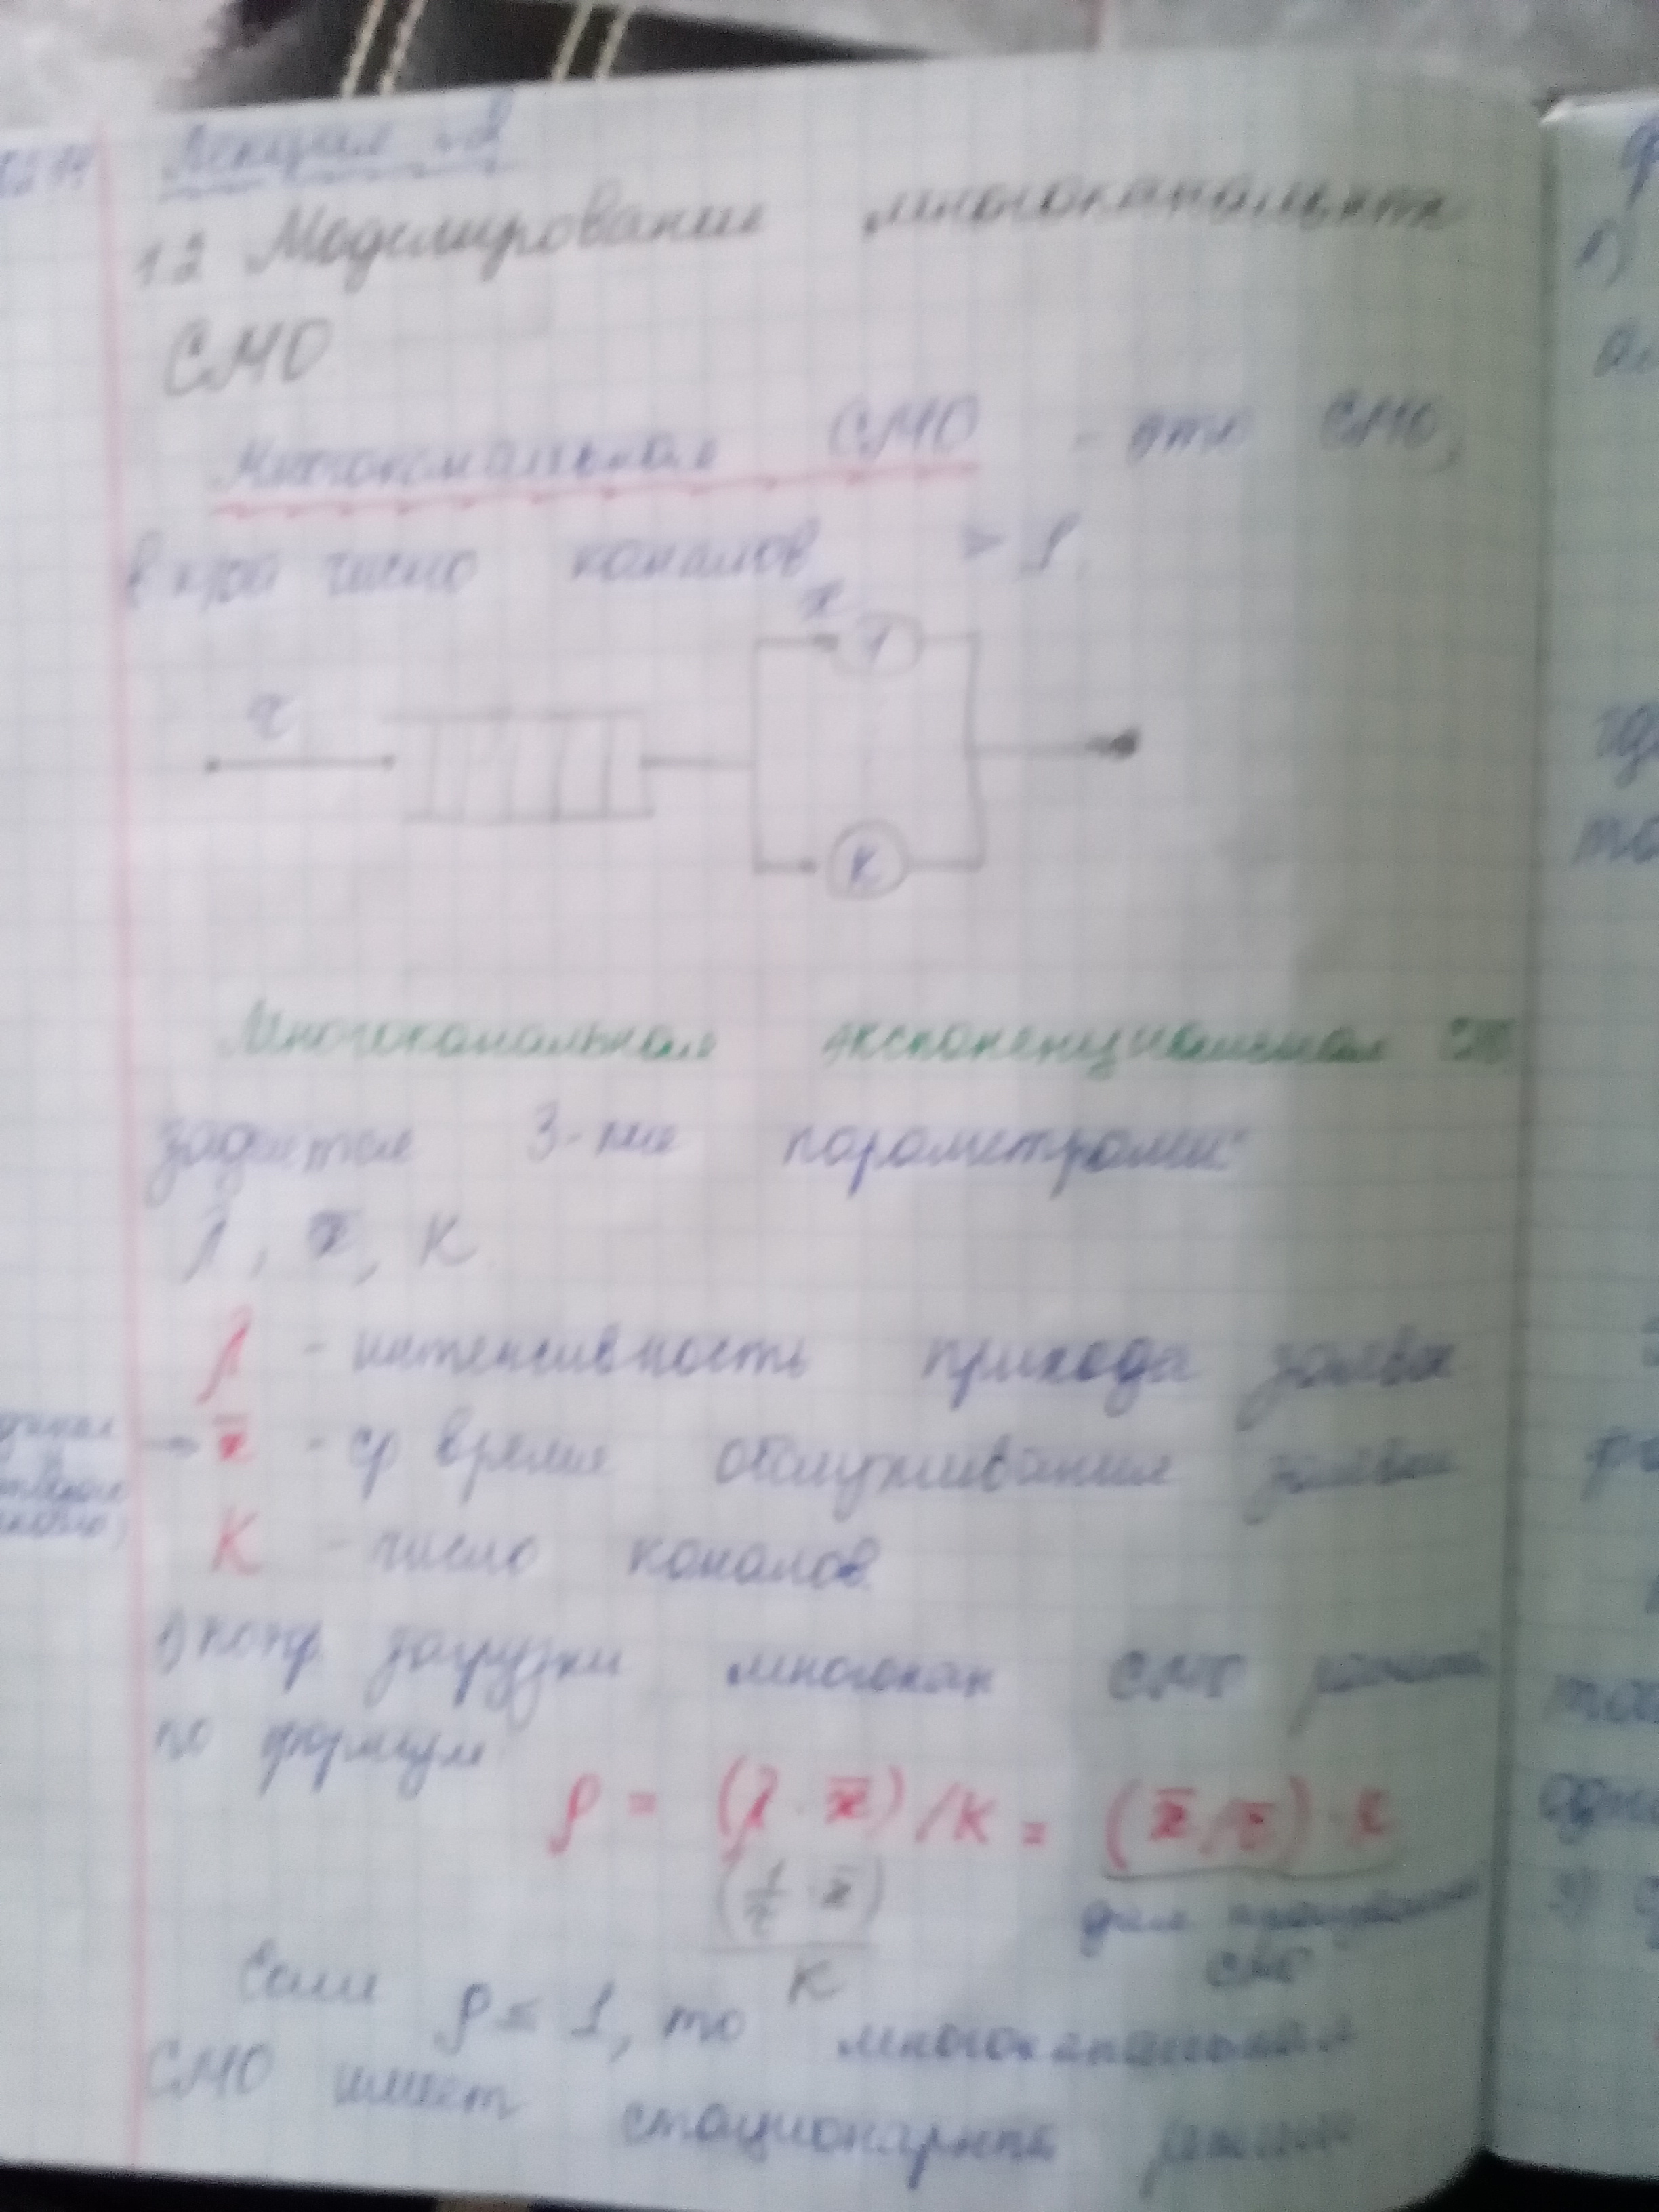 Лекция
1.2 Моделирование многоканальных
СМО
Многоканальная СМО - это СМО,
в к-рой число каналов > 1.
τ
x
1
K
Многоканальная экспоненциальная
задаётся 3-мя параметрами:
λ, x̄, K
λ - интенсивность прихода заявок
→ x̄ - ср время обслуживания заявки
K - число каналов
1) коэф загрузки многокан СМО
по формуле
ρ = (λ · x̄) / K = (x̄ / τ̄) · K
(1/τ · x̄) / K
для
СМО
Если ρ ≤ 1, то многоканальная
СМО имеет стационарное решение